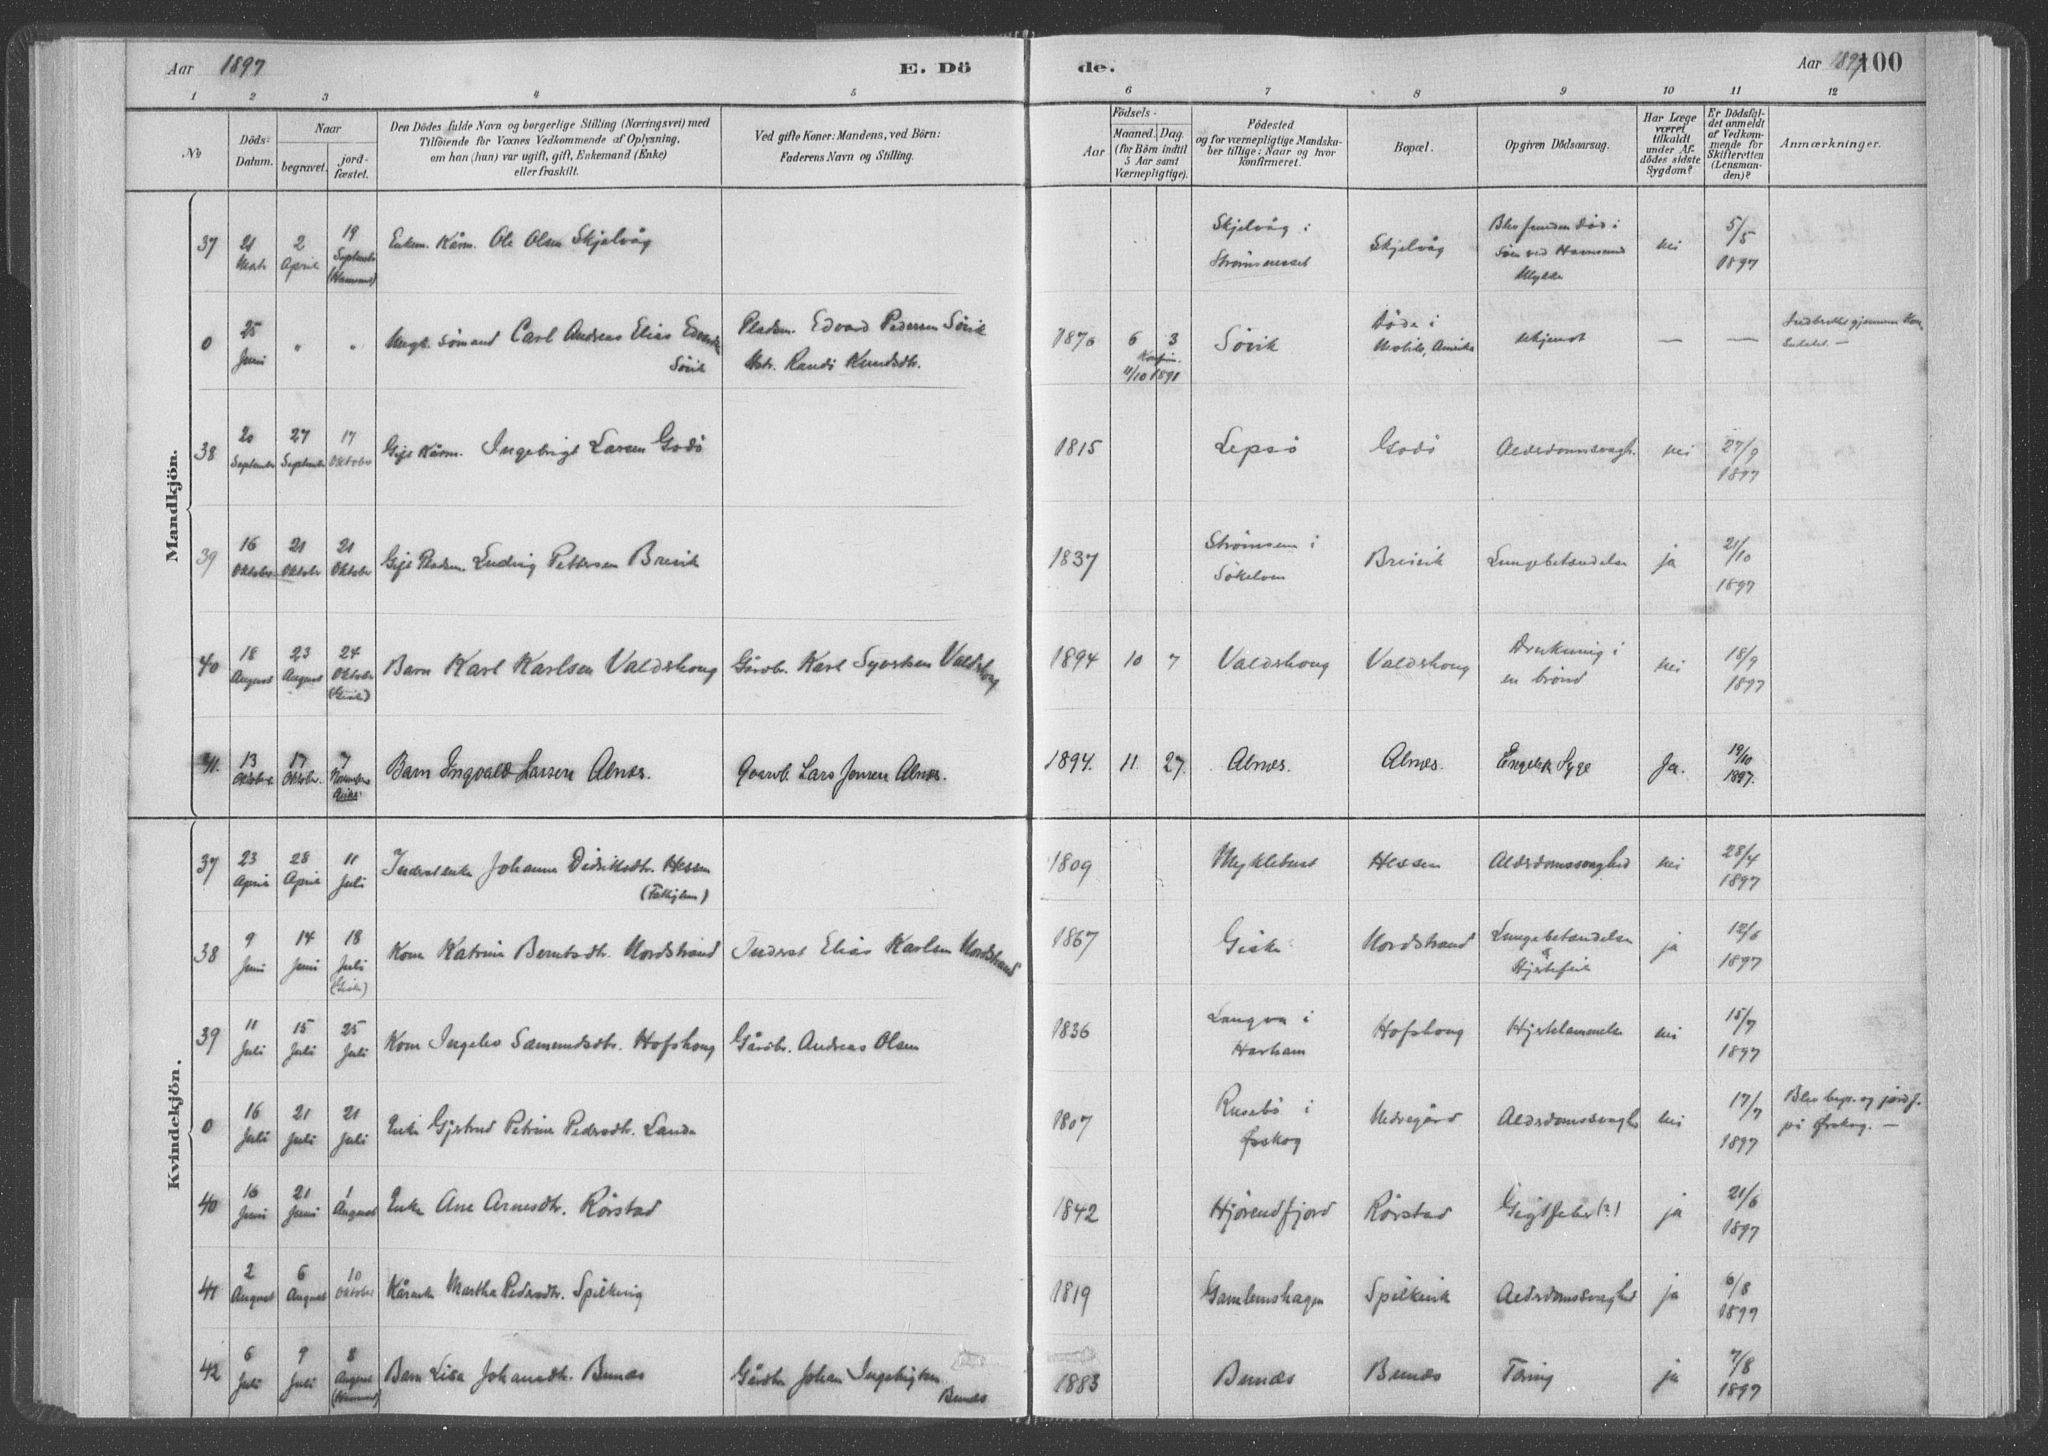 Aar 1897
E. Dö
de.
Aar 1897
100
1 2 3 4 5 6 7 8 9 10 11 12
No
Döds-Datum.
Naar
begravet.
jord-fæstet.
Den Dödes fulde Navn og borgerlige Stilling (Næringsvei) med
Tilföiende for Voxnes Vedkommende af Oplysning,
om han (hun) var ugift, gift, Enkemand (Enke)
eller fraskilt.
Ved gifte Koner: Mandens, ved Börn:
Faderens Navn og Stilling.
Födsels-
Aar
Maaned. Dag.
(for Börn indtil
5 Aar samt
Værnepligtige).
Födested
og for værnepligtige Mandska-
ber tillige: Naar og hvor
konfirmeret.
Bopæl.
Opgiven Dödsaarsag.
Har Læge
været
tilkaldt
under Af-
dödes sidste
Sygdom?
Er Dödsfal-
det anmeldt
af Vedkom-
mende for
Skifteretten
(Lensman-
den)?
Anmærkninger.
Mandkjön.
37 21 Marts 2 April 19 September Enkem. Kårm. Ole Olsen Skjelvåg Skjelvåg i Strømsneset Skjelvåg Blev funden død i Søen ved Havnsund Ulykke nei 5/5 1897
0 25 Juni " " Ungk. Sömand Carl Andreas Elias Edvardsen Sövik Pladsm. Edvard Pedersen Sövik Hstr. Randi Knudsdtr. 1876 6 3 Konfirm. 11/10 1891 Sövik Döde i Mobile, Amerika ukjendt — — Indberettet gjennem Konsulatet. —
38 20 September 27 September 17 Oktober Gift Kårm. Ingebrigt Larsen Godö 1815 Lepsö Godö Alderdomssvagh. nei 27/9 1897
39 16 Oktober 21 Oktober 21 Oktober Gift Pladsm. Ludvig Pettersen Breivik 1837 Strömmen i Sökelven Breivik Lungebetændelse ja 21/10 1897
40 18 August 23 August 24 Oktober Barn Karl Karlsen Valdshoug Gårdbr. Karl Syvertsen Valdshoug 1894 10 7 Valdshoug Valdshoug Drukning i en brönd nei 18/9 1897
41. 13 Oktober. 17 Oktober. 7 November Barn Ingvald Larsen Alnæs. Gaardb. Lars Jensen Alnæs. 1894. 11. 27. Alnæs. Alnæs. Engelsk Syge Ja. 19/10 1897.
Kvindekjön.
37 23 April 28 April 11 Juli Inderstenke Johanne Didriksdtr. Hessen (Fattiglem) 1809 Myklebust Hessen Alderdomssvaghed nei 28/4 1897
38 9 Juni 14 Juni 18 Juli (Giske) Kone Katrine Berntsdtr. Nordstrand Inderst Elias Karlsen Nordstrand 1867 Giske Nordstrand Lungebetændelse & Hjertefeil ja 12/6 1897
39 11 Juli 15 Juli 25 Juli Kone Ingeles Samundsdtr. Hofshoug Gårdbr. Andreas Olsen 1836 Longva i Harham Hofshoug Hjertelammelse nei 15/7 1897
0 16 Juli 21 Juli 21 Juli Enke Gjertrud Petrine Pedersdtr. Lande 1807 Rusebö i Ørskog Nedregård Alderdomssvaghed nei 17/7 1897 Blev begr. og jordf. på Ørskog. —
40 16 Juni 21 Juni 1 August Enke Ane Arnesdtr. Rörstad 1842 Hjörendfjord Rörstad Gigtfeber (?) ja 21/6 1897
41 2 August 6 August 10 Oktober Kårenke Martha Pedersdtr. Spilkevig 1819 Gamlemshagen Spilkevik Alderdomssvaghed ja 6/8 1897
42 6 Juli 9 Juli 8 August Barn Lisa Johansdtr. Bunæs Gårdbr Johan Ingebrigtsen Bunæs 1883 Bunæs Bunæs Tæring ja 7/8 1897